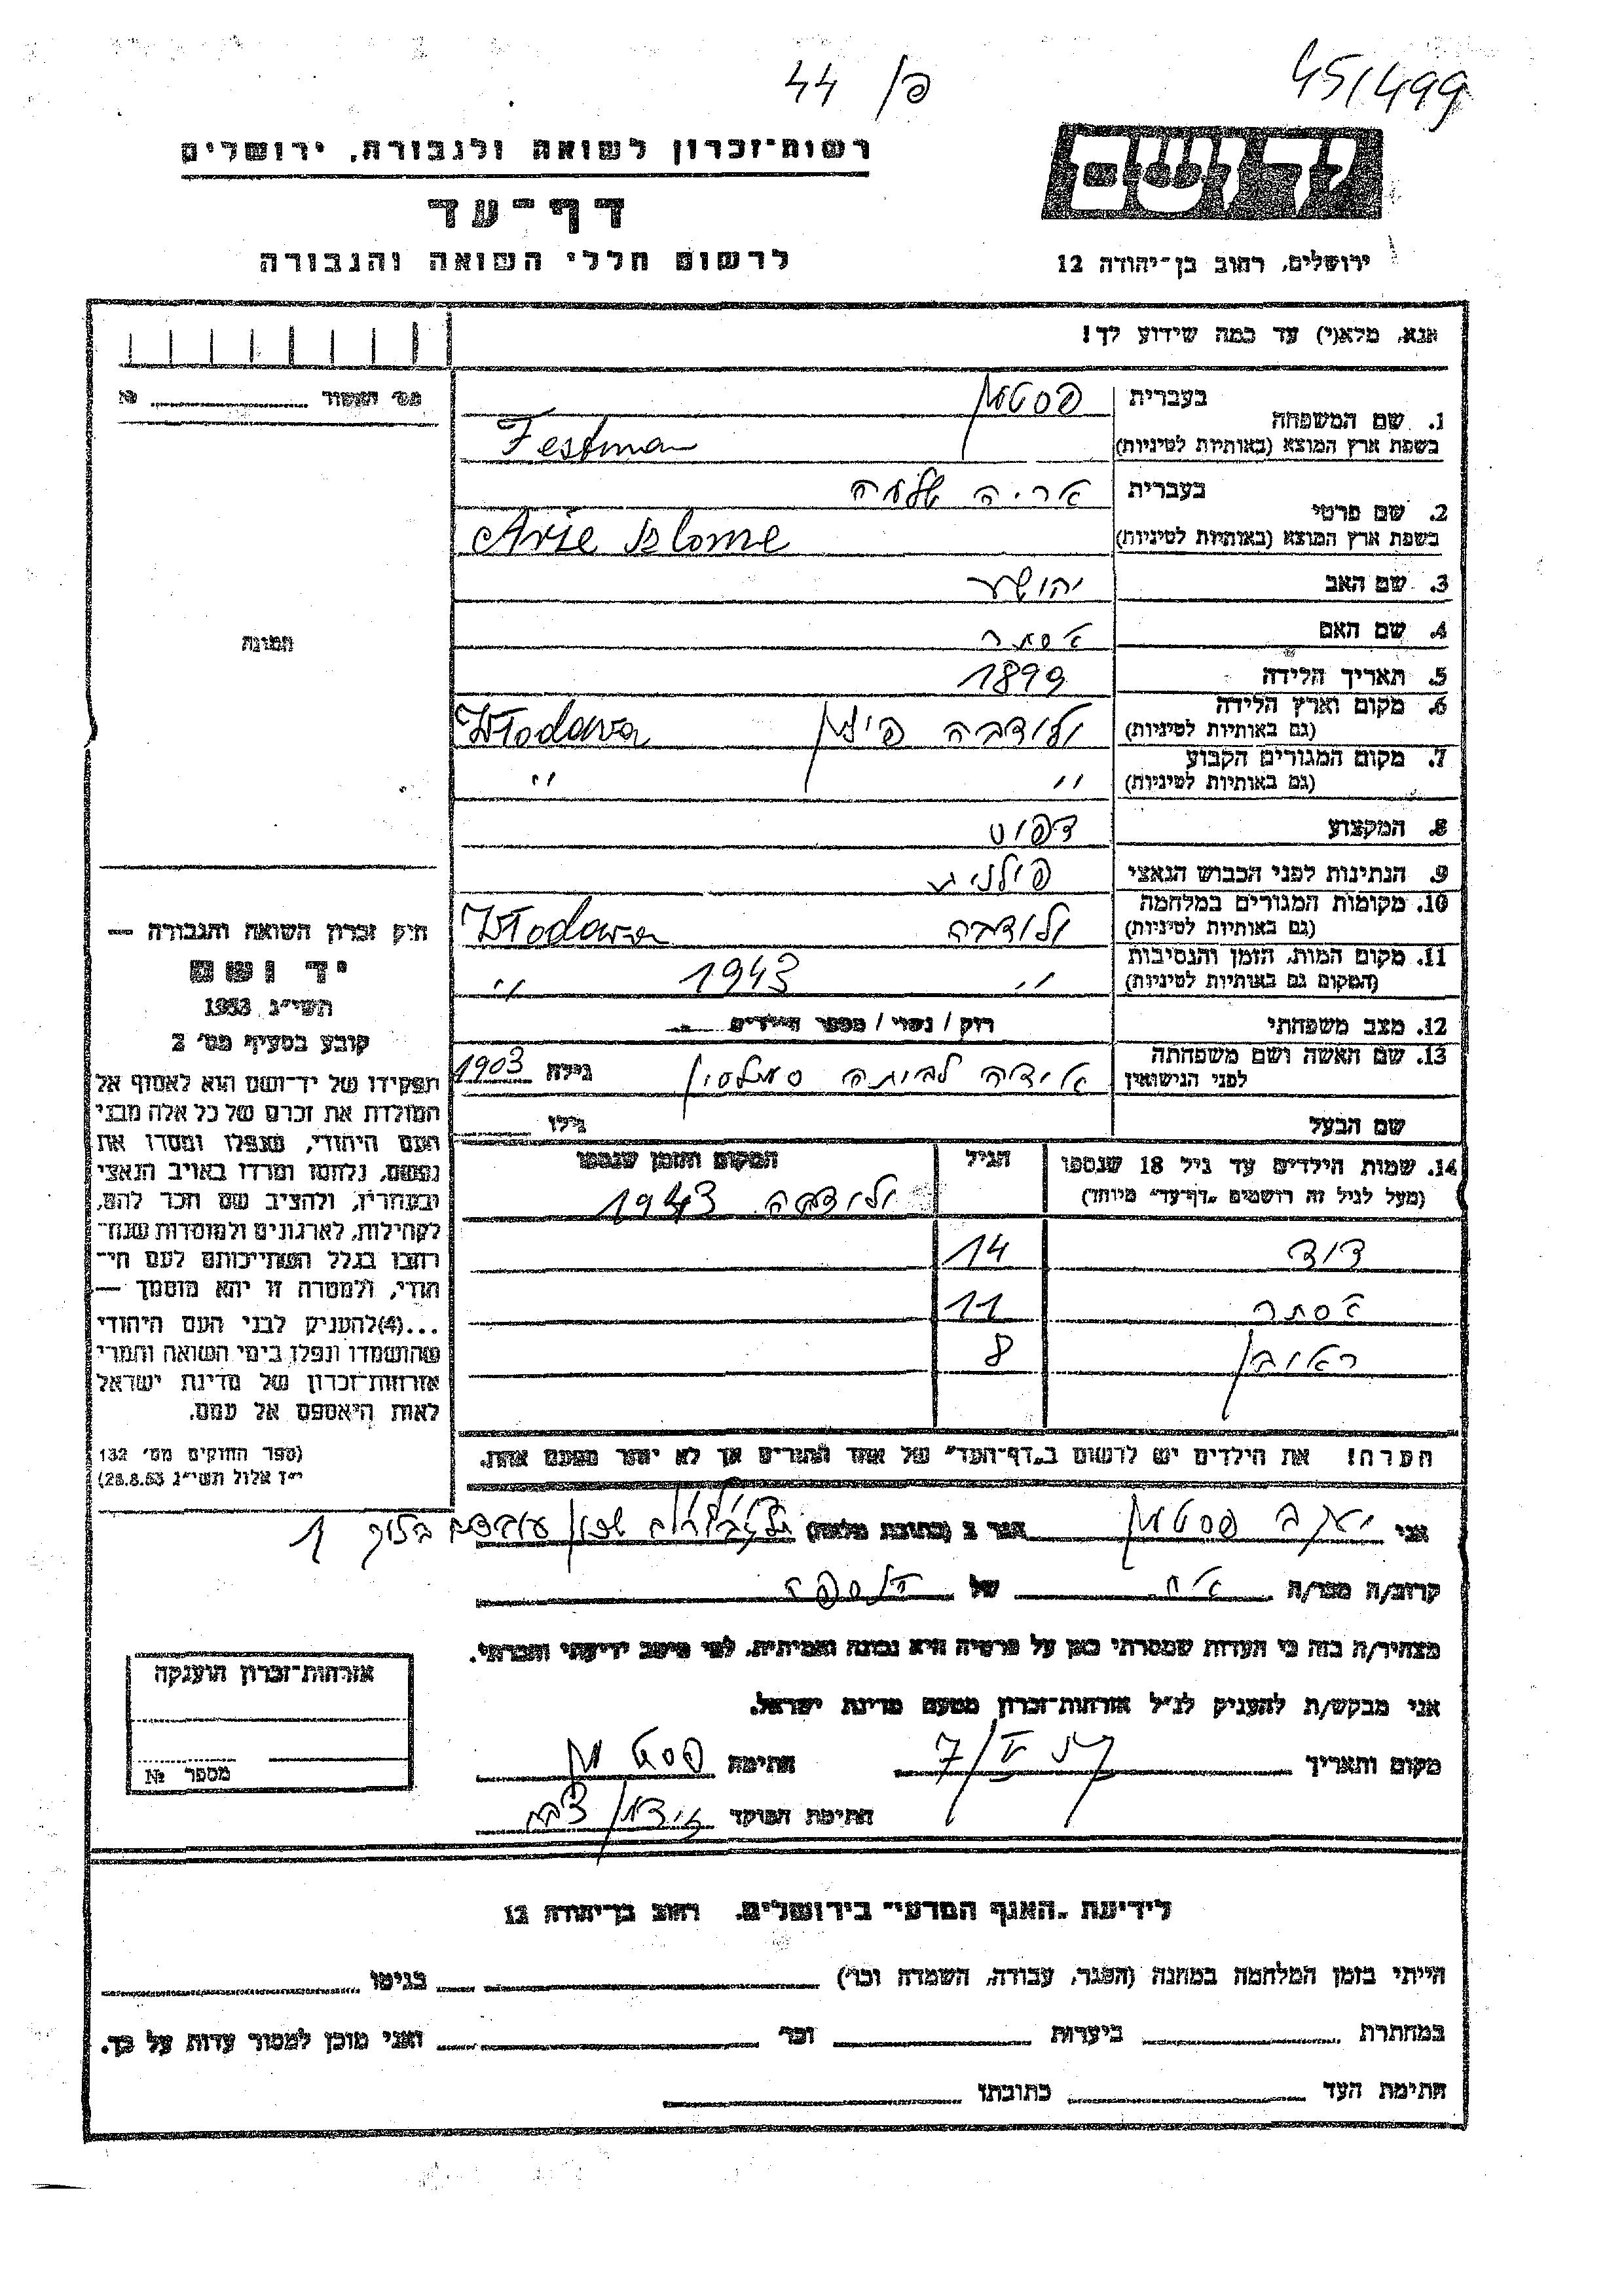 פ/ 44
45/499
רשות-זכרון לשואה ולגבורה, ירושלים
דף-עד
לרשום חללי השואה והגבורה
יד ושם
ירושלים, רחוב בן-יהודה 12
אנא, מלא(י) עד כמה שידוע לך!
1. שם המשפחה
בעברית פסטמן
בשפת ארץ המוצא (באותיות לטיניות) Festman
2. שם פרטי
בעברית אריה שלמה
בשפת ארץ המוצא (באותיות לטיניות) Arie Szlome
3. שם האב יהושע
4. שם האם אסתר
5. תאריך הלידה 1899
6. מקום וארץ הלידה ולודבה פולין Włodawa
(גם באותיות לטיניות)
7. מקום המגורים הקבוע
(גם באותיות לטיניות) " "
8. המקצוע דפוס
9. הנתינות לפני הכבוש הנאצי פולנית
10. מקומות המגורים במלחמה ולודבה Włodawa
(גם באותיות לטיניות)
11. מקום המות, הזמן והנסיבות " 1943 "
(המקום גם באותיות לטיניות)
12. מצב משפחתי רווק / נשוי / מספר הילדים
13. שם האשה ושם משפחתה לבית גילה 1903
לפני הנישואין
שם הבעל גילו
14. שמות הילדים עד גיל 18 שנספו הגיל המקום והזמן שנספו
(מעל לגיל זה רושמים "דף-עד" מיוחד) ולודבה 1943
דוד 14
אסתר 11
ראובן 8
הערה! את הילדים יש לרשום ב"דף-העד" של אחד ההורים אך לא יותר מפעם אחת.
מס' האשור №
תמונה
חוק זכרון השואה והגבורה —
יד ושם
תשי"ג 1953
קובע בסעיף מס' 2
תפקידו של יד-ושם הוא לאסוף אל
המולדת את זכרם של כל אלה מבני
העם היהודי, שנפלו ומסרו את
נפשם, נלחמו ומרדו באויב הנאצי
ובעוזריו, ולהציב שם וזכר להם,
לקהילות, לארגונים ולמוסדות שנח-
רבו בגלל השתייכותם לעם הי-
הודי, ולמטרה זו יהא מוסמך —
...(4) להעניק לבני העם היהודי
שהושמדו ונפלו בימי השואה והמרי
אזרחות-זכרון של מדינת ישראל
לאות היאספם אל עמם.
(ספר החוקים מס' 132
י"ז אלול תשי"ג 28.8.53)
אני יעקב פסטמן הגר ב (כתובת מלאה) שכון עובדים בלוק 1
קרוב/ה מצר/ה אח של הנספה
מצהיר/ה בזה כי העדות שמסרתי כאן על פרטיה היא נכונה ואמיתית, לפי מיטב ידיעתי והכרתי.
אני מבקש/ת להעניק לנ"ל אזרחות-זכרון מטעם מדינת ישראל.
מקום ותאריך 7/V 57 חתימה פסטמן
חתימת הפוקד
אזרחות-זכרון הוענקה
מספר №
לידיעת "האגף המדעי" בירושלים, רחוב בן-יהודה 12
הייתי בזמן המלחמה במחנה (הסגר, עבודה, השמדה וכו') בגיטו
במחתרת ביערות וכו' ואני מוכן למסור עדות על כך.
חתימת העד כתובתו